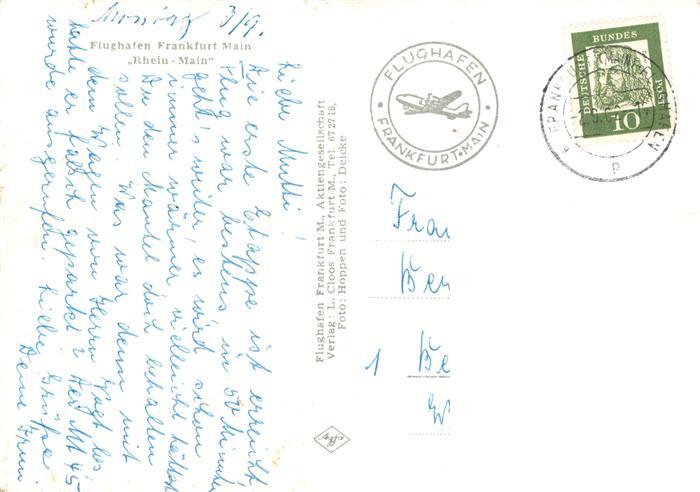 Monsieur 3/9.
Flughafen Frankfurt Main
„Rhein-Main“
Liebe Mutti!
Die erste Etappe ist erreicht
Flug war bestens in 50 Minuten
geht's weiter, es wird schon
immer wärmer, vielleicht hättest
Du den Mantel doch behalten
sollen. Was war denn mit
dem Wagen von Herrn Vogt bes
hatte er falsch geparkt? Der
wurde ausgerufen. Liebe Grüße
Deine
Flughafen Frankfurt M., Aktiengesellschaft
Verlag: L. Cloos Frankfurt M., Tel. 672719,
Foto: Hoppen und Foto: Deicke
FLUGHAFEN
FRANKFURT·MAIN
DEUTSCHE BUNDESPOST
10
FRANKFURT
HAFEN
p
Frau
Ber
1 Be